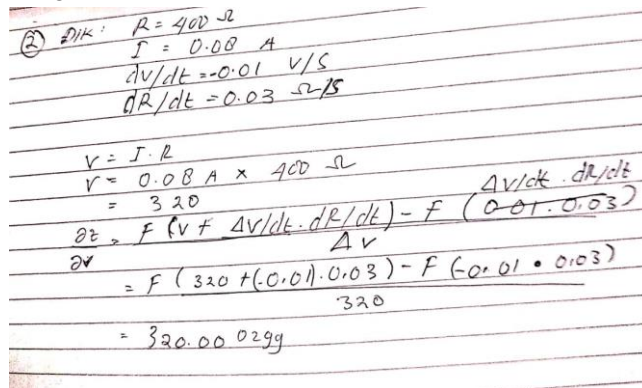 ② DIK : R = 400 Ω
I = 0.08 A
dv/dt = -0.01 V/S
dR/dt = 0.03 Ω/S
V = I . R
V = 0.08 A × 400 Ω
= 320
∂z/∂v = F (V + Δv/dt . dR/dt) - F (0.01 . 0.03) Δv/dt . dR/dt / Δv
= F (320 + (-0.01) . 0.03) - F (-0.01 • 0.03) / 320
= 320.00 0299